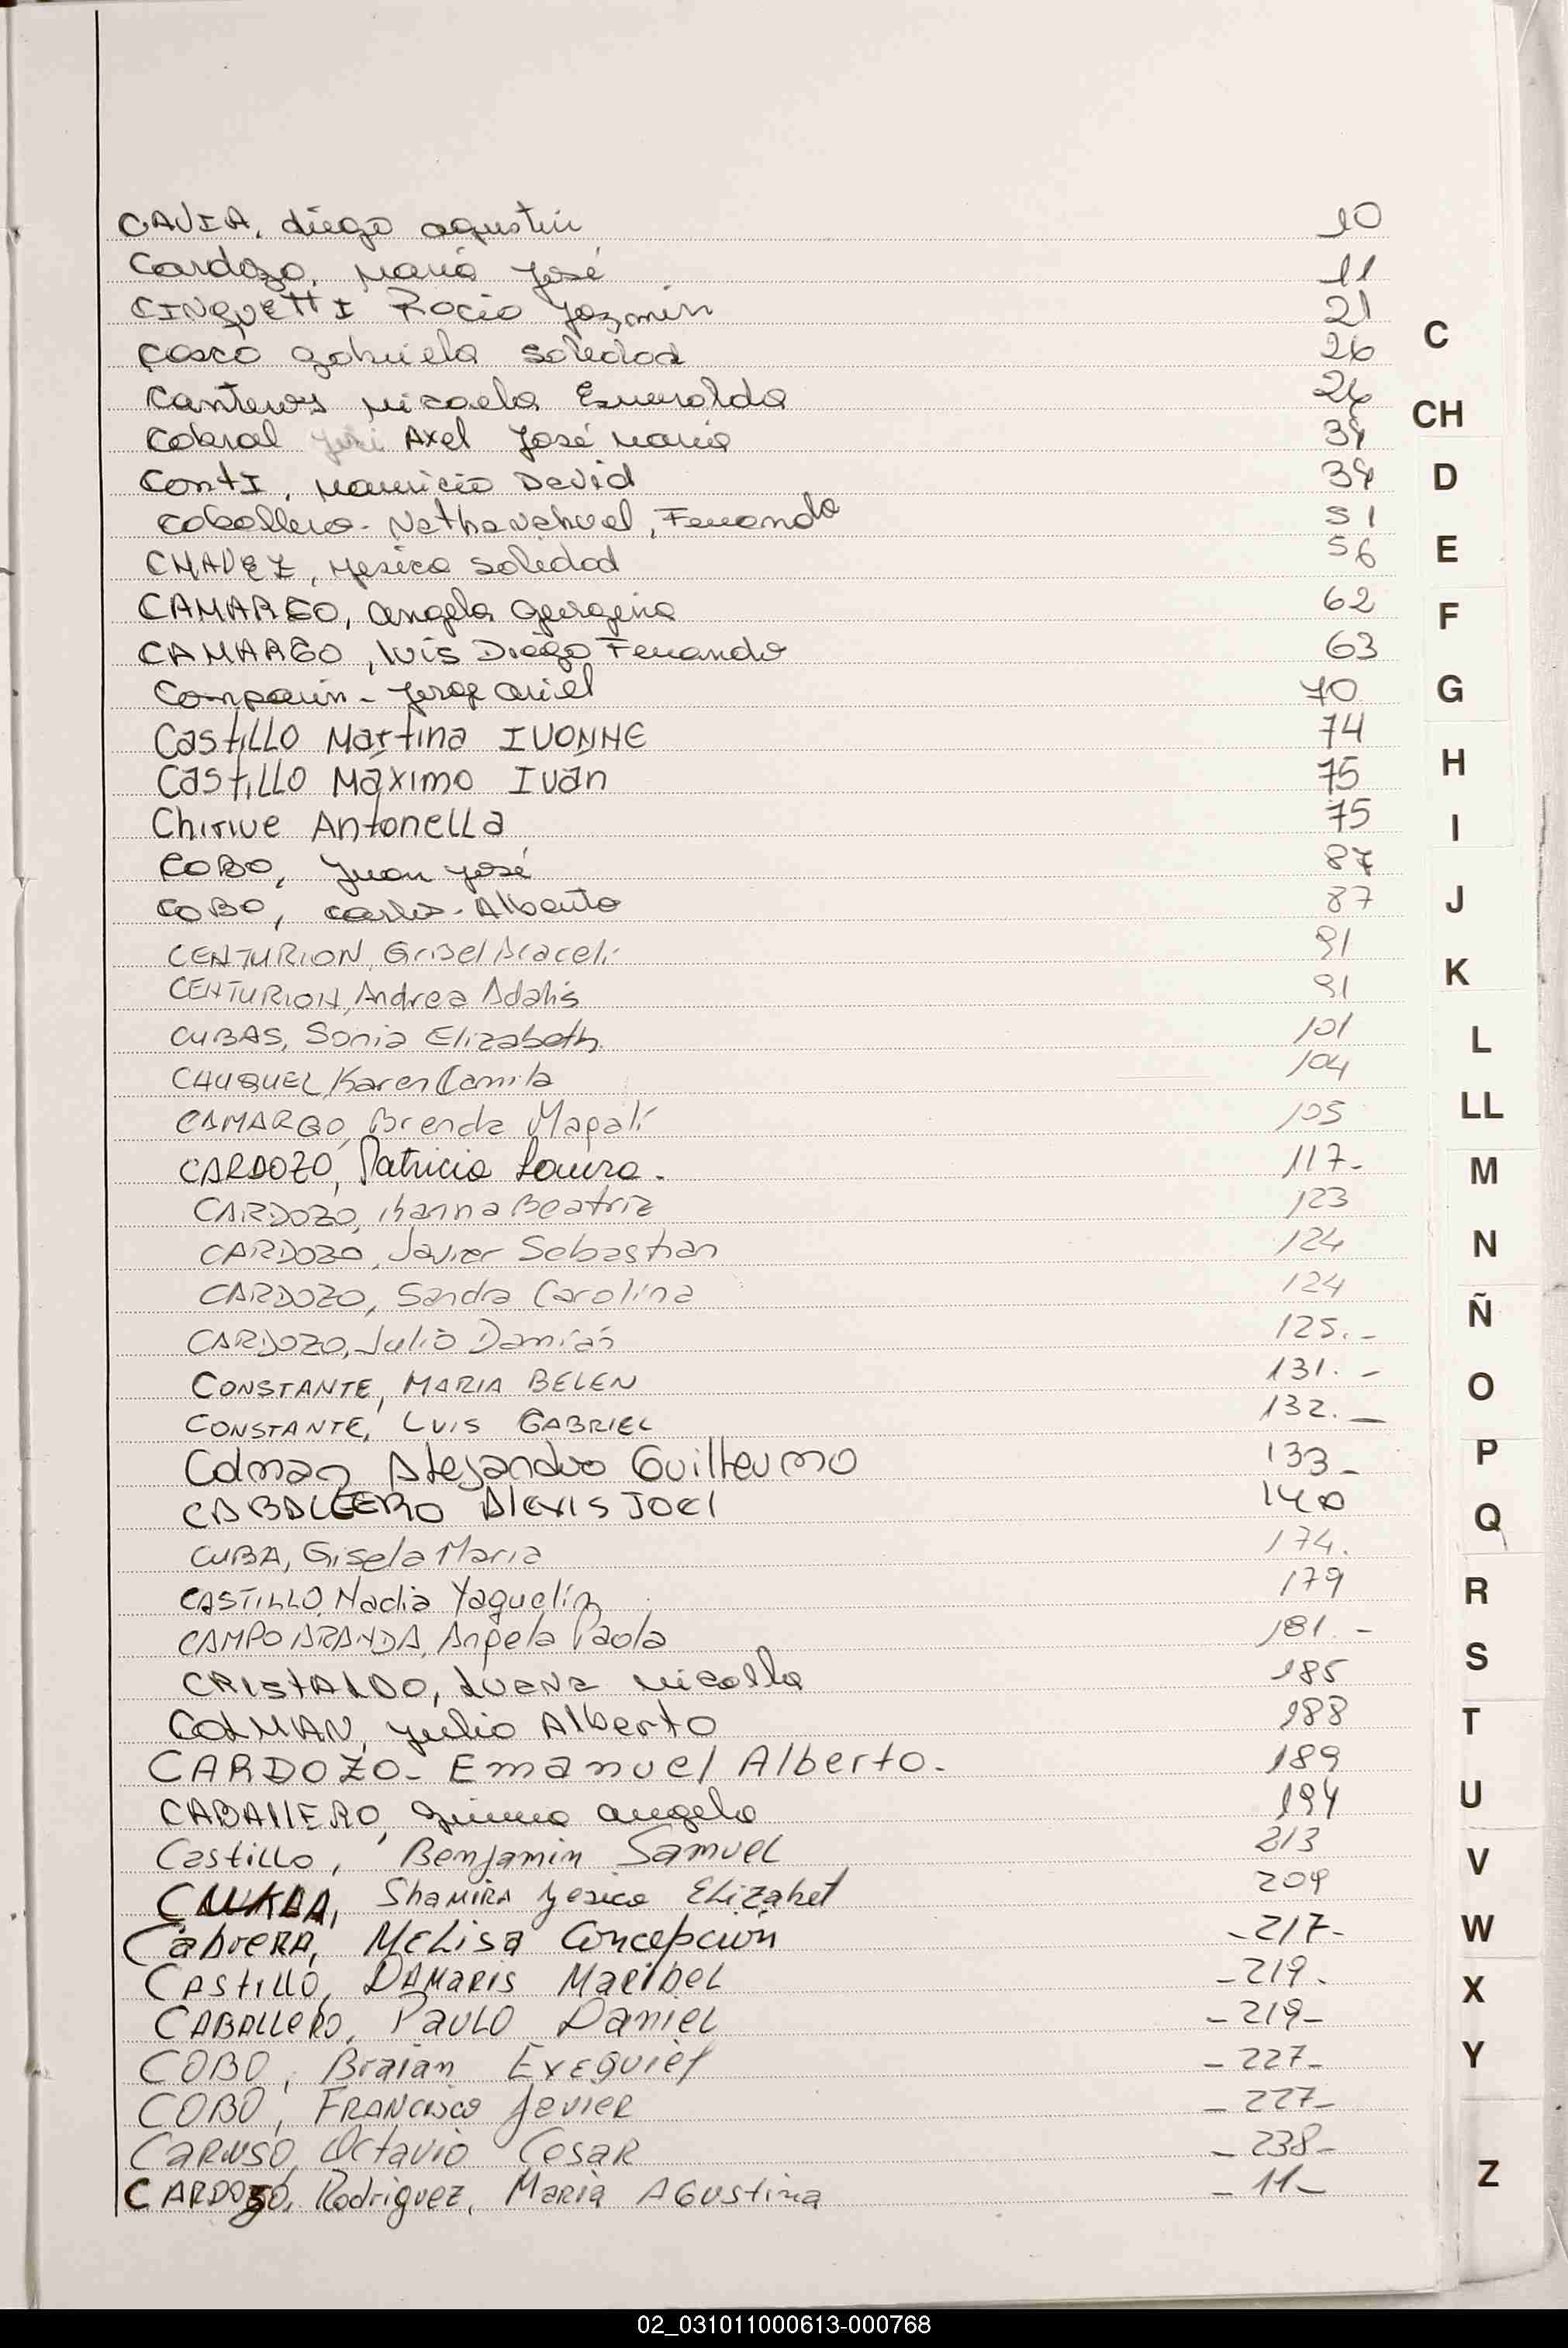 CAVIA, diego agustin 10
Cardozo, Maria José 11
CINQUETTI Rocio Yazmin 21
Cosco Gabriela Soledad 26
Canteros Micaela Esmeralda 26
Cabral Axel José Maria 34
ContI, Mauricio David 34
Caballero - Nathanahuel, Fernando 51
CHAVEZ, Yesica Soledad 56
CAMARGO, Angela Georgina 62
CAMARGO, luis Diego Fernando 63
Comparin - Jorge Ariel 70
Castillo Martina IVONNE 74
Castillo Máximo Ivan 75
Chirive Antonella 75
COBO, Juan José 87
COBO, Carlos - Alberto 87
CENTURION, Grisel Araceli 91
CENTURION, Andrea Adalis 91
CUBAS, Sonia Elizabeth 101
CHUQUEL, Karen Camila 104
CAMARGO, Brenda Magalí 105
CARDOZO, Patricia Laura. 117-
CARDOZO, Ihanna Beatriz 123
CARDOZO, Javier Sebastian 124
CARDOZO, Sandra Carolina 124
CARDOZO, Julio Damián 125.-
CONSTANTE, MARIA BELEN 131.-
CONSTANTE, LUIS GABRIEL 132.-
Colman Alejandro Guillermo 133-
CABALLERO Alexis JOEL 140
CUBA, Gisela Maria 174.
CASTILLO, Nadia Yaquelín 179
CAMPO ARANDA, Angela Paola 181.-
CRISTALDO, Luana Nicolle 185
COLMAN, Julio Alberto 188
CARDOZO - Emanuel Alberto. 189
CABALLERO, Angelo 194
Castillo, Benjamin Samuel 213
Shamira Yesica Elizabet 209
Cabrera, Melisa Concepción -217-
Castillo, DAMARIS Maribel -219.
CABALLERO, Paulo Daniel -219-
COBO, Braian Exequiel -227-
COBO, FRANCISCO Javier -227-
CARUSO, Octavio Cesar -238-
CARDOZO, Rodriguez, Maria Agustina -11-
C
CH
D
E
F
G
H
I
J
K
L
LL
M
N
Ñ
O
P
Q
R
S
T
U
V
W
X
Y
Z
02_031011000613-000768